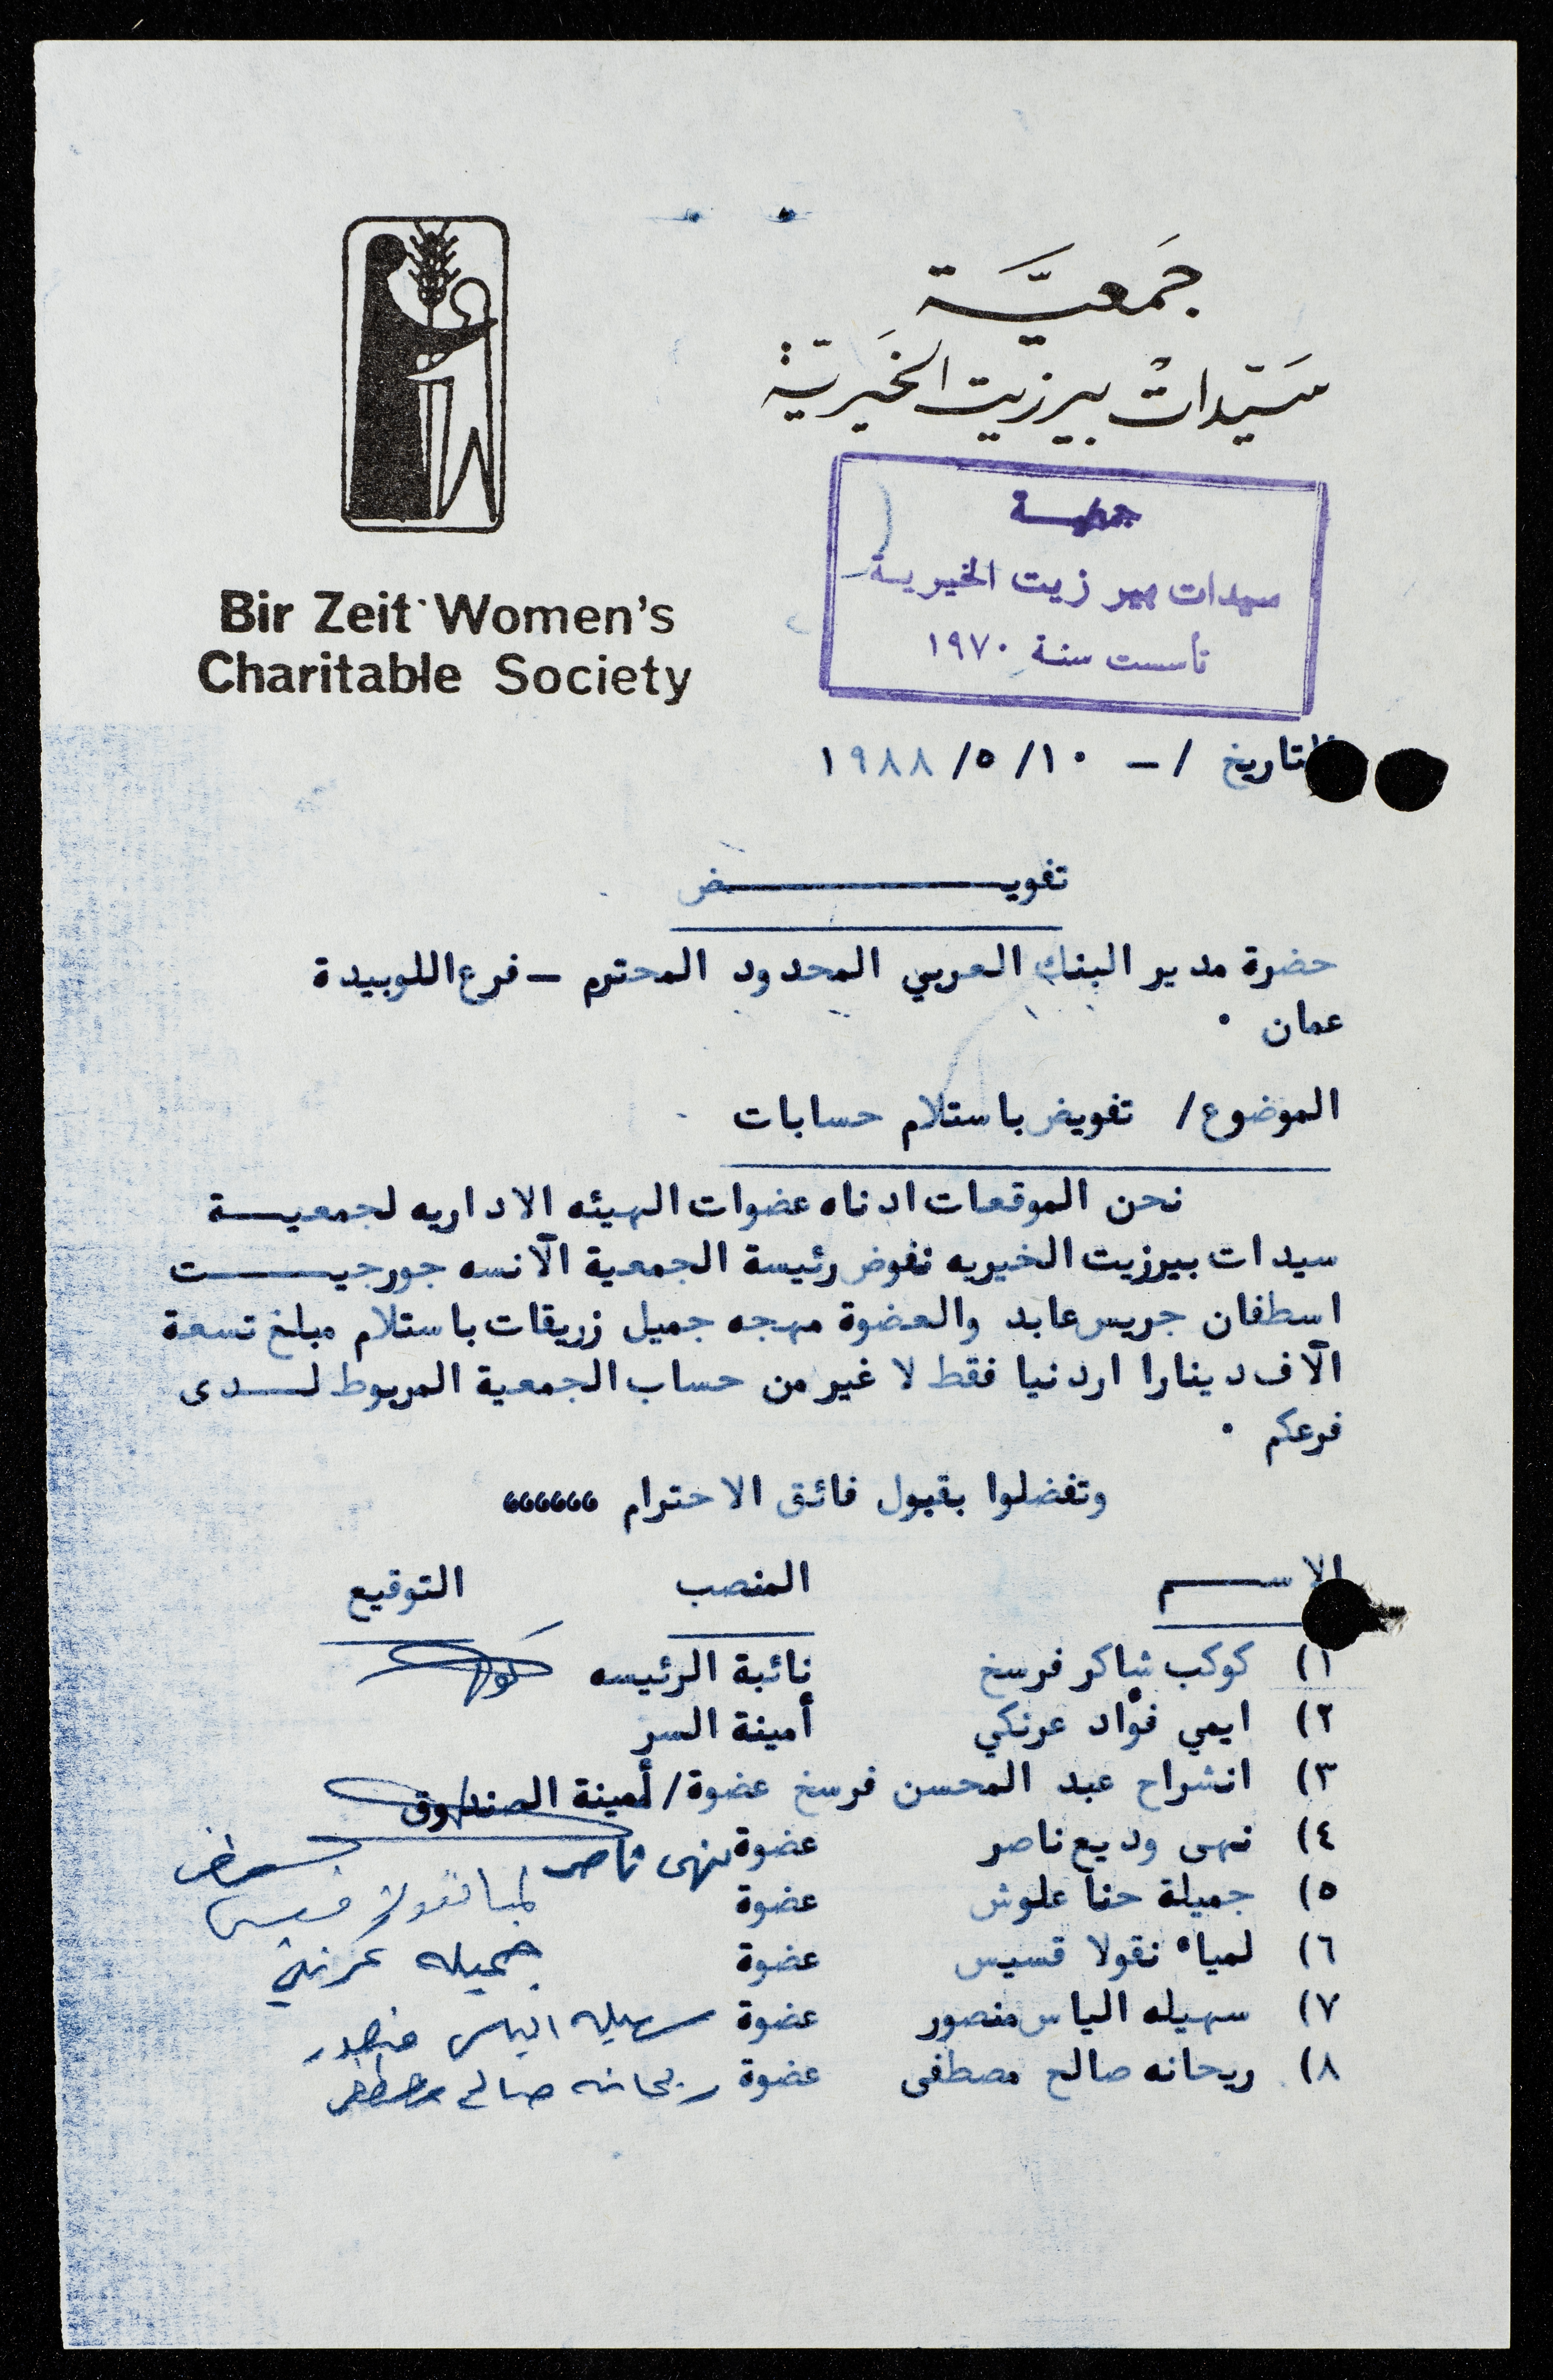 جَمعيَّة
سَيّدات بيرزيت الخَيريّة
Bir Zeit Women's
Charitable Society
جمعيـــة
سيدات بير زيت الخيرية
تأسست سنة ١٩٧٠
التاريخ /ــ ١٩٨٨/٥/١٠
تفويـــــــــــــض
حضرة مدير البنك العربي المحدود المحترم ــ فرع اللويبدة
عمان ٠
الموضوع/ تفويض باستلام حسابات
نحن الموقعات ادناه عضوات الهيئه الاداريه لجمعيـــة
سيدات بيرزيت الخيريه نفوض رئيسة الجمعية الآنسه جورجيـــــت
اسطفان جريس عابد والعضوة مهجه جميل زريقات باستلام مبلغ تسعة
الآف دينارا اردنيا فقط لا غير من حساب الجمعية المربوط لـــدى
فرعكم ٠
وتفضلوا بقبول فائق الاحترام ،،،،،،
الاســـم المنصب التوقيع
١) كوكب شاكر فرسخ نائبة الرئيسه
٢) ايمي فؤاد عرنكي أمينة السر
٣) انشراح عبد المحسن فرسخ عضوة/أمينة الصندوق
٤) نهى وديع ناصر عضوة نهى ناصر
٥) جميلة حنا علوش عضوة
٦) لمياء نقولا قسيس عضوة جميله
٧) سهيله الياس منصور عضوة سهيله الياس منصور
٨) ريحانه صالح مصطفى عضوة ريحانه صالح مصطفى